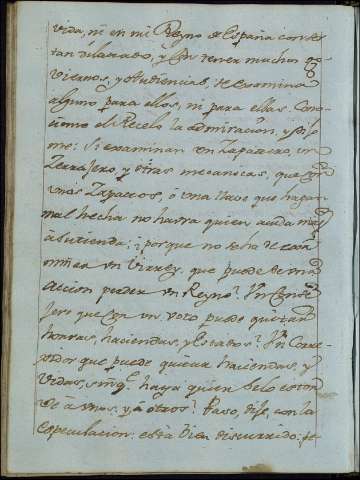 vida, ni en mi Reyno de España con ser
tan dilatado, y sin tener muchos
y Audiencias, de examina
alguno para ellos, ni para ellas. Cono
cióme el Recelo la admiracion, y dijo
me: Si examinan un Zapatero, un
Zerrajero, y otras mecanicas, que con
unos Zapatos, ó una llave que hagan
mal hecha no havra quien acuda mas
á su tienda; porque no se ha de exa
minar un Virrey, que puede de una
accion perder un Reyno? Un Conse
jero que con un voto puede quitar
honras, haciendas, y Estados? Un Corre
xidor que puede quitar haciendas, y
Vidas, sin q.e haya quien se lo estor
ve á unos, y á otros? Paso, dije, con la
especulacion: está bien discurrido: